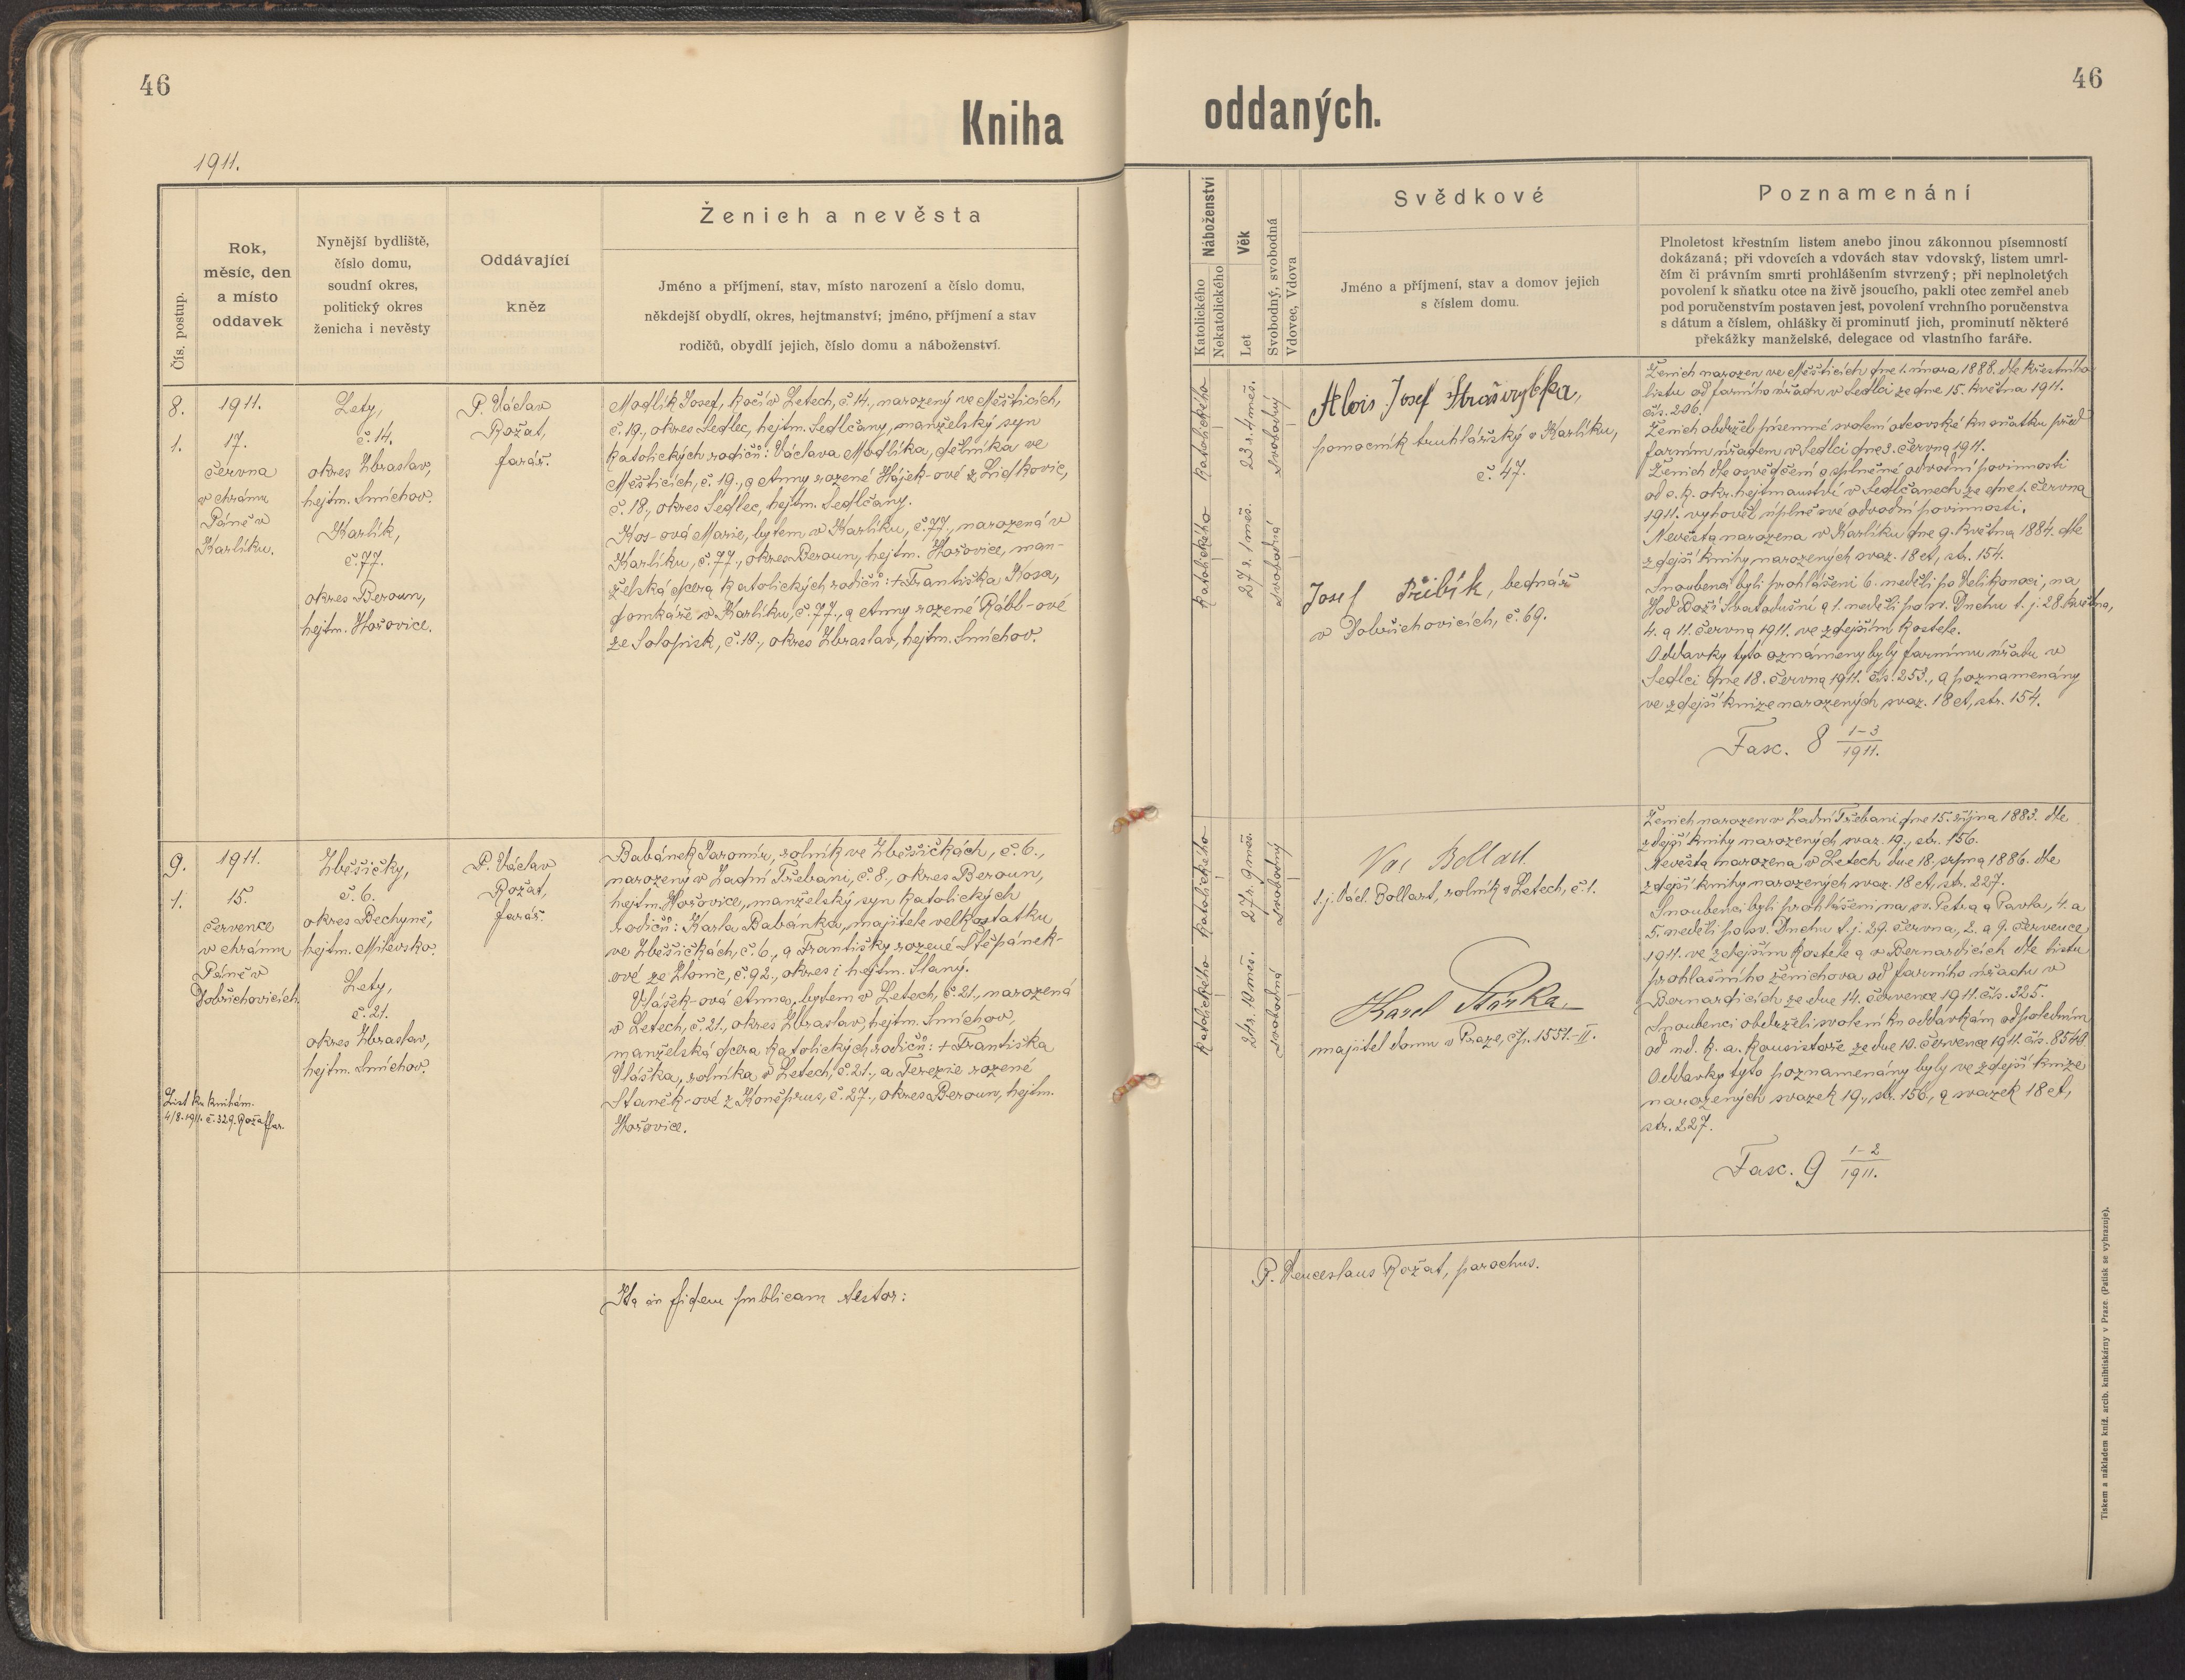 46
Kniha
1911.
Čís. postup.
Rok,
měsíc, den
a místo
oddavek
Nynější bydliště,
číslo domu,
soudní okres,
politický okres
ženicha i nevěsty
Oddávající
kněz
Ženich a nevěsta
Jméno a příjmení, stav, místo narození a číslo domu,
někdejší obydlí, okres, hejtmanství; jméno, příjmení a stav
rodičů, obydlí jejich, číslo domu a náboženství.
8.
1.
1911.
17.
června
v chrámu
Páně v
Karlíku.
Lety,
č. 14.
okres Zbraslav,
hejtm. Smíchov.
Karlík,
č. 77.
okres Beroun,
hejtm. Hořovice.
P. Václav
Rožat,
farář.
Modlík Josef, kočí v Letech, č. 14., narozený ve Měšticích,
č. 19., okres Sedlec, hejtm. Sedlčany, manželský syn
katolických rodičů: Václava Modlíka, dělníka ve
Měšticích, č. 19., a Anny rozené Hájek-ové z Lidkovic,
č. 18., okres Sedlec, hejtm. Sedlčany.
Kos-ová Marie, bytem v Karlíku, č. 77., narozená v
Karlíku, č. 77., okres Beroun, hejtm. Hořovice, man-
želská dcera katolických rodičů: + Františka Kosa,
domkáře v Karlíku, č. 77., a Anny rozené Rább-ové
ze Solopisk, č. 19., okres Zbraslav, hejtm. Smíchov.
9.
1.
1911.
15.
července
v chrámu
Páně v
Dobřichovicích.
List ku knihám.
4/8. 1911. č. 329. Rožat far.
Zběšičky,
č. 6.
okres Bechyně,
hejtm. Milevsko.
Lety,
č. 21.
okres Zbraslav,
hejtm. Smíchov.
P. Václav
Rožat,
farář.
Babánek Jaromír, rolník ve Zběšičkách, č. 6.,
narozený v Zadní Třebani, č. 8., okres Beroun,
hejtm. Hořovice, manželský syn katolických
rodičů: Karla Babánka, majitele velkostatku
ve Zběšičkách, č. 6., a Františky rozené Štěpánek-
ové ze Zlonic, č. 92., okres i hejtm. Slaný.
Vlášek-ová Anna, bytem v Letech, č. 21., narozená
v Letech, č. 21., okres Zbraslav, hejtm. Smíchov,
manželská dcera katolických rodičů: + Františka
Vláška, rolníka v Letech, č. 21., a Terezie rozené
Staněk-ové z Koněprus, č. 27., okres Beroun, hejtm.
Hořovice.
Ita in fidem publicam testor:
46
oddaných.
Náboženství
Katolického
Nekatolického
Věk
Let
Svobodný, svobodná
Vdovec, Vdova
Svědkové
Jméno a příjmení, stav a domov jejich
s číslem domu.
Poznamenání
Plnoletost křestním listem anebo jinou zákonnou písemností
dokázaná; při vdovcích a vdovách stav vdovský, listem umrl-
čím či právním smrti prohlášením stvrzený; při neplnoletých
povolení k sňatku otce na živě jsoucího, pakli otec zemřel aneb
pod poručenstvím postaven jest, povolení vrchního poručenstva
s dátum a číslem, ohlášky či prominutí jich, prominutí některé
překážky manželské, delegace od vlastního faráře.
Katolického
23 r. 4 měs.
svobodný
Katolického
27 r. 1 měs.
svobodná
Alois Josef Strašrybka,
pomocník truhlářský v Karlíku,
č. 47.
Josef Přibík, bednář
v Dobřichovicích, č. 69.
Ženich narozen ve Měšticích dne 1. února 1888. dle křestního
listu od farního úřadu v Sedlci ze dne 15. května 1911.
čís. 206.
Ženich obdržel písemné svolení otcovské ku sňatku před
farním úřadem v Sedlci dne 3. června 1911.
Ženich dle osvědčení o splněné odvodní povinnosti
od c. k. okr. hejtmanství v Sedlčanech ze dne 1. června
1911. vyhověl úplně své odvodní povinnosti.
Nevěsta narozena v Karlíku dne 9. května 1884. dle
zdejší knihy narozených svaz. 18 et, str. 154.
Snoubenci byli prohlášeni 6. neděli po Velikonoci, na
Hod Boží Svatodušní a 1. neděli po sv. Duchu t. j. 28. května,
4. a 11. června 1911. ve zdejším kostele.
Oddavky tyto oznámeny byly farnímu úřadu v
Sedlci dne 18. června 1911. čís. 253., a poznamenány
ve zdejší knize narozených svaz. 18 et, str. 154.
Fasc. 8 1-3/1911.
Katolického
27 r. 9 měs.
svobodný
Katolického
24 r. 10 měs.
svobodná
Vác Bollart
t. j. Václ. Bollart, rolník v Letech, č. 1.
Karel
majitel domu v Praze, čp. 1551.-II.
Ženich narozen v Zadní Třebani dne 15. října 1883. dle
zdejší knihy narozených svaz. 19., str. 156.
Nevěsta narozena v Letech dne 18. srpna 1886. dle
zdejší knihy narozených svaz. 18 et, str. 227.
Snoubenci byli prohlášeni na sv. Petra a Pavla, 4. a
5. neděli po sv. Duchu t. j. 29. června, 2. a 9. července
1911. ve zdejším kostele a v Bernardicích dle listu
prohlašního ženichova od farního úřadu v
Bernardicích ze dne 14. července 1911. čís. 325.
Snoubenci obdrželi svolení ku oddavkám odpoledním
od nd. k. a. konsistoře ze dne 10. července 1911. čís. 8540.
Oddavky tyto poznamenány byly ve zdejší knize
narozených svazek 19., str. 156., a svazek 18 et,
str. 227.
Fasc. 9 1-2/1911.
P. Venceslaus Rožat, parochus.
Tiskem a nákladem kníž. arcib. knihtiskárny v Praze. (Patisk se vyhrazuje).